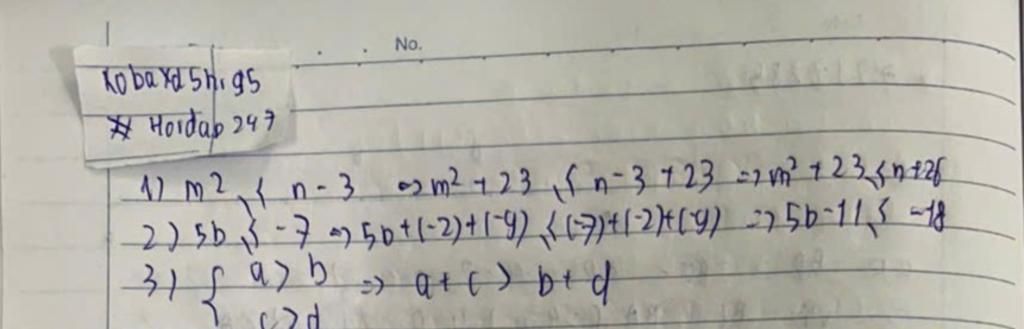 No.
xobaxd5h.g5
# Hoidap 247
1) m² ≤ n - 3 => m² + 23 ≤ n - 3 + 23 => m² + 23 ≤ n + 26
2) 5b ≤ -7 => 5b + (-2) + (-9) ≤ (-7) + (-2) + (-9) => 5b - 11 ≤ -18
3) { a > b => a + c > b + d
c > d